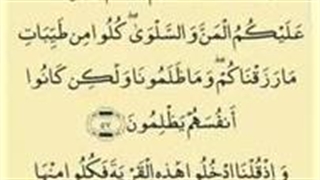 عَلَيْكُمُ الْمَنَّ وَالسَّلْوَىٰ ۖ كُلُوا مِن طَيِّبَاتِ
مَا رَزَقْنَاكُمْ ۖ وَمَا ظَلَمُونَا وَلَٰكِن كَانُوا
أَنفُسَهُمْ يَظْلِمُونَ ﴿٥٧﴾
وَإِذْ قُلْنَا ادْخُلُوا هَٰذِهِ الْقَرْيَةَ فَكُلُوا مِنْهَا